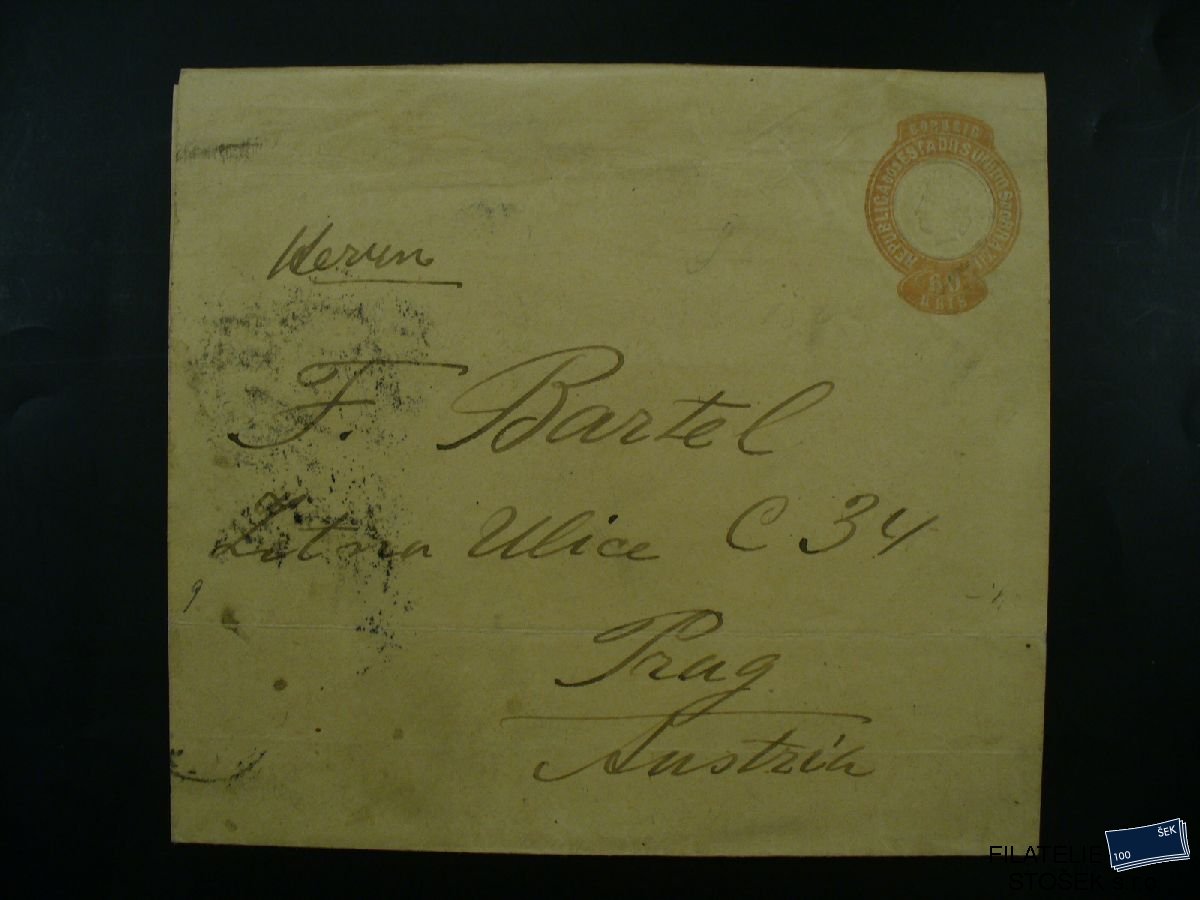 CORREIO
REPUBLICA DOS ESTADOS UNIDOS DO BRAZIL
60
REIS
Herrn
F. Bartel
Zitna Ulice C 34
Prag
Austria
ŠEK
100
FILATELIS
STOŠEK s.r.o.